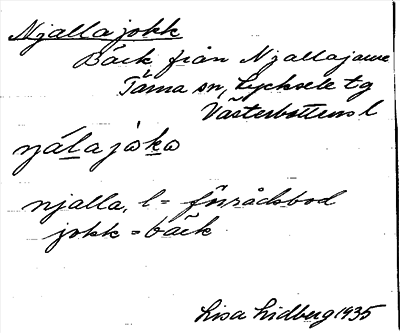 Njallajokk
Bäck från Njallajaure
Tärna sn, Lycksele tg
Västerbottens l
njálajåkə
njalla, l = förrådsbod
jokk = bäck
Lisa Lidberg 1935